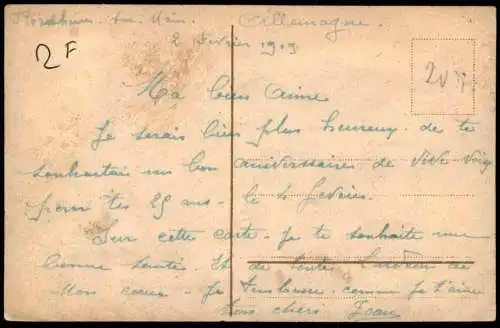 sur Main. Allemagne.
2 Fevrier 1919
2 F
Ma bien Aimé
Je serais bien plus heureux de te
souhaiter un bon anniversaire de vive voix
pour tes 25 ans - le 4 Fevrier
Sur cette carte. Je te souhaite une
bonne santé. Et de toutes de
Mon cœur - Je t'embrasse comme je t'aime
ton cheri Jean